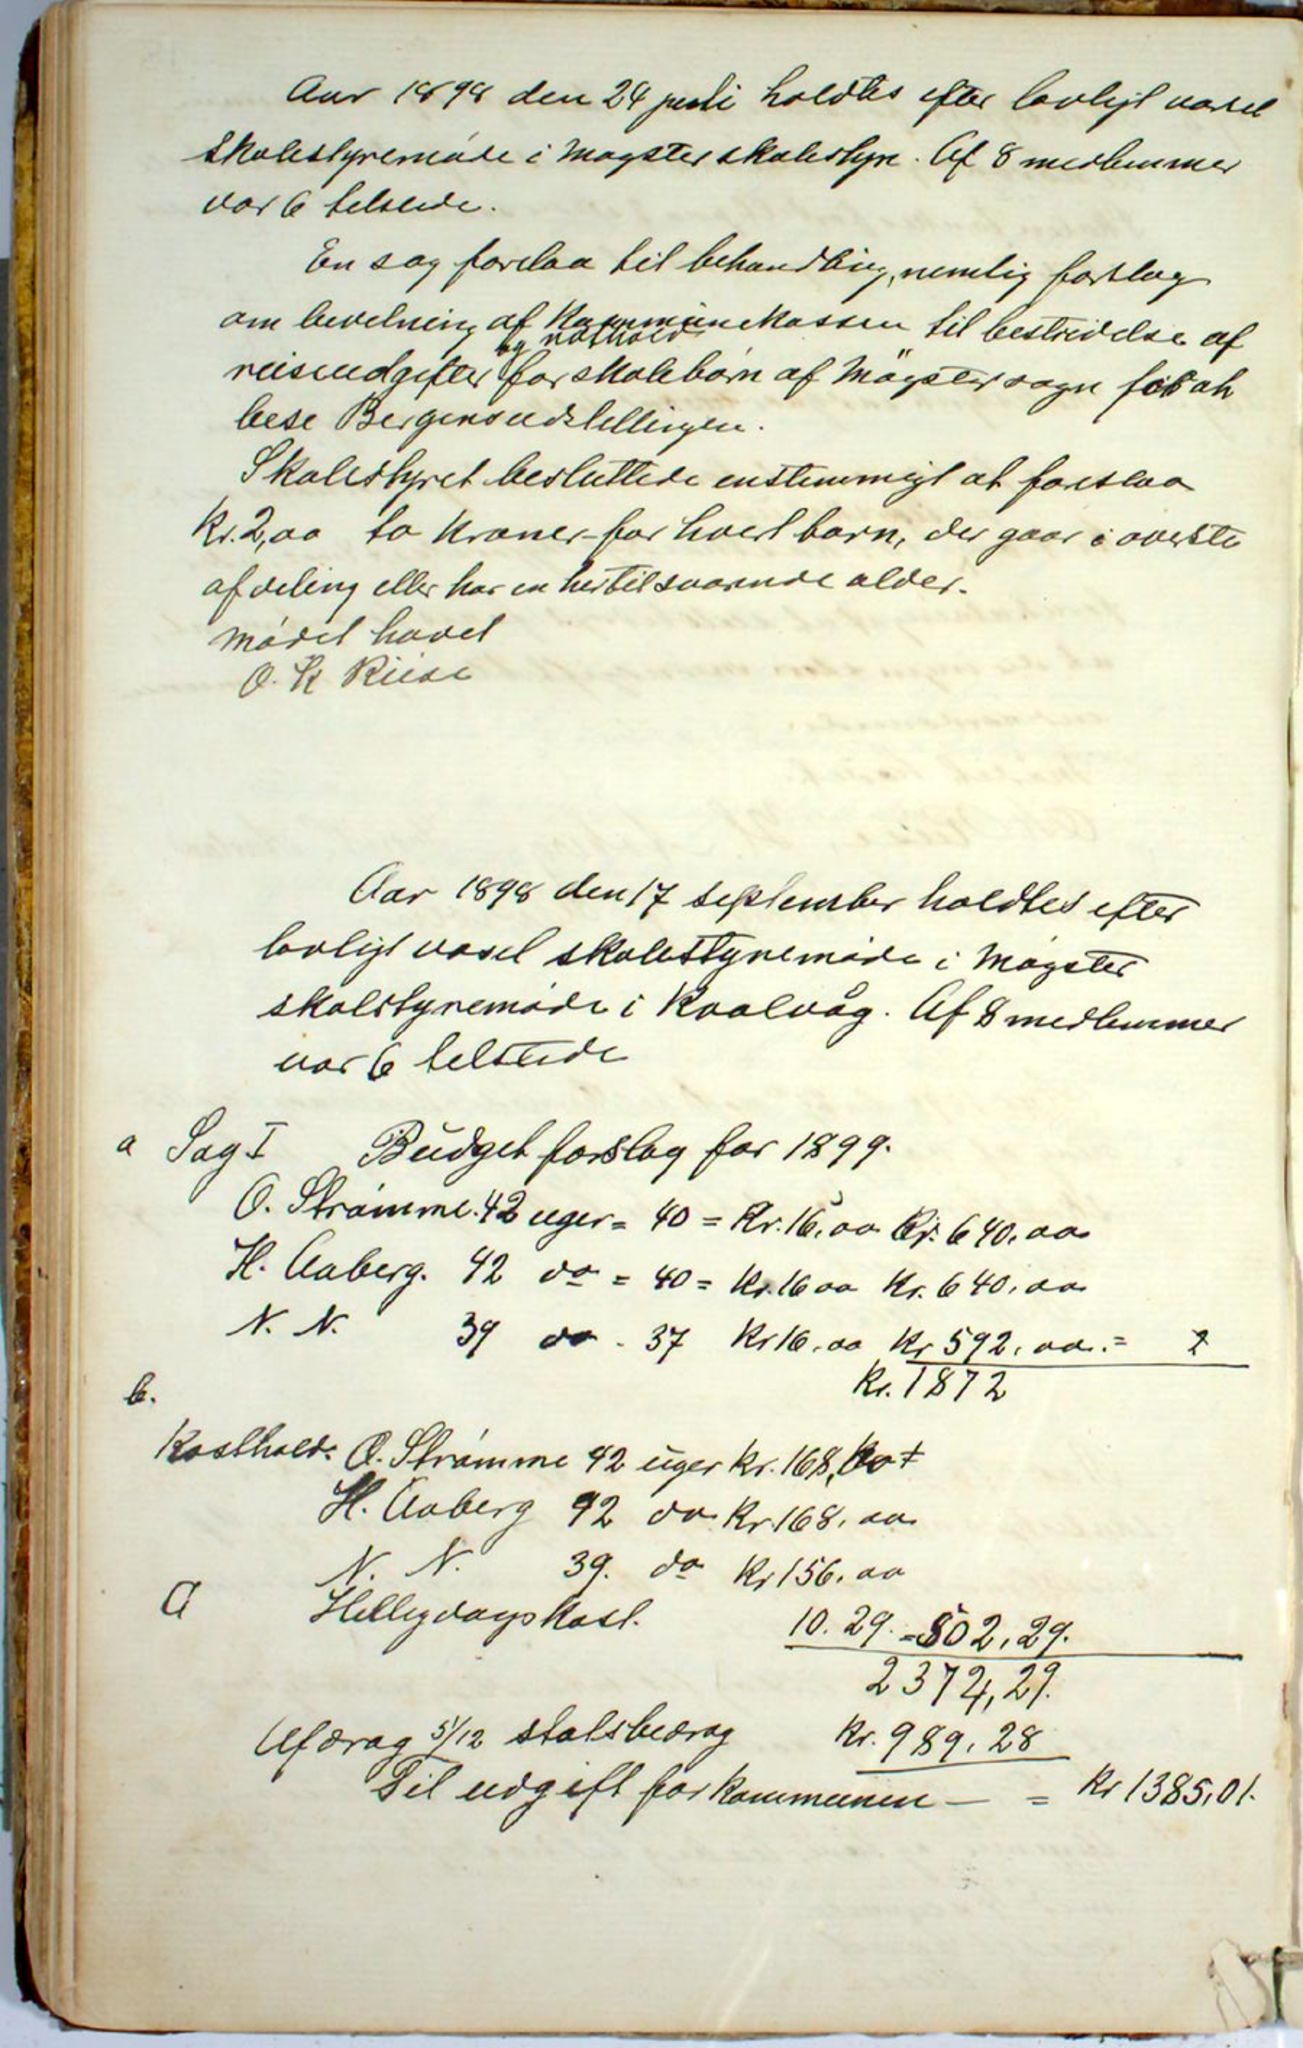 Aar 1898 den 24 juli holdtes efter lovligt varsel
skolestyremøde i Møgster skolestyre. Af 8 medlemmer
var 6 telstede.
En sag forelaa til behandling, nemlig forslag
om bevelning af Kommunekassen til bestridelse af
reiseudgifter og kosthold for skolebørn af Møgster sogn for at
bese Bergensudstellingen.
Skolestyret besluttede enstemmigt at foreslaa
Kr. 2,00 to Kroner for hvert barn, der gaar i øverste
afdeling eller har en hertil svarende alder.
Mødet hævet
O. K Riise
Aar 1898 den 17 september holdtes efter
lovligt vasel skolestyremøde i Møgster
skolstyremøde i Kvalvåg. Af 8 medlemmer
var 6 telstede
a Sag I Budget forslag for 1899.
O. Strømme. 42 uger = 40 = Kr. 16,00 Kr. 640,00
H. Aaberg. 42 do = 40 = Kr. 16 00 Kr. 640,00
N. N. 39 do - 37 Kr 16,00 Kr 592,00. = 2
Kr. 1872
b.
Kosthold: O. Strømme 42 uger Kr. 168,00 +
H. Aaberg 42 do Kr 168,00
N. N. 39. do Kr 156,00
a Helligdagskost. 10. 29. = 502,29.
2374,29.
Afdrag 5/12 statsbedrag Kr. 989,28
Til udgift for kommunen — = Kr 1385,01.